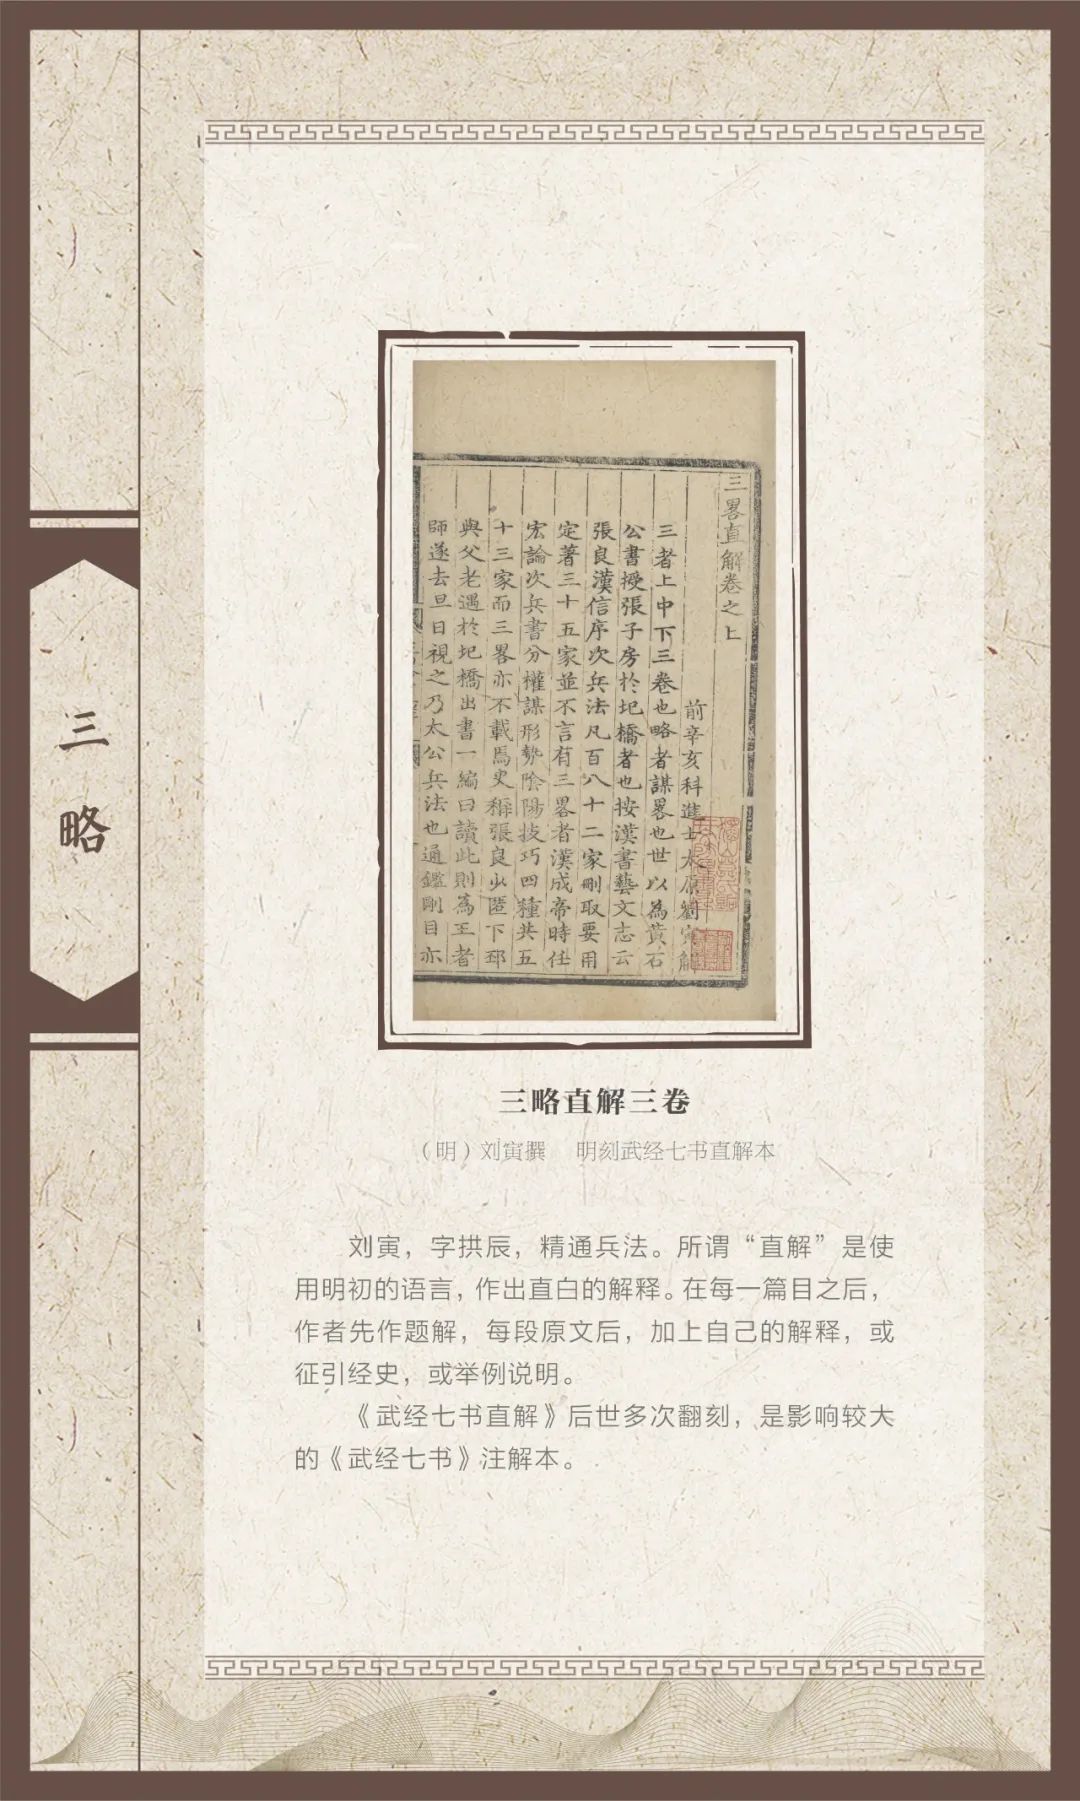 三略
三畧直解卷之上
前辛亥科進士太原劉寅解
三者上中下三卷也略者謀畧也世以為黃石
公書授張子房於圯橋者也按漢書藝文志云
張良漢信序次兵法凡百八十二家刪取要用
定著三十五家並不言有三畧者漢成帝時任
宏論次兵書分權謀形勢陰陽技巧四種共五
十三家而三畧亦不載焉史稱張良少匿下邳
與父老遇於圯橋出書一編曰讀此則為王者
師遂去旦日視之乃太公兵法也通鑑剛目亦
三略直解三卷
（明）刘寅撰 明刻武经七书直解本
刘寅，字拱辰，精通兵法。所谓“直解”是使
用明初的语言，作出直白的解释。在每一篇目之后，
作者先作题解，每段原文后，加上自己的解释，或
征引经史，或举例说明。
《武经七书直解》后世多次翻刻，是影响较大
的《武经七书》注解本。